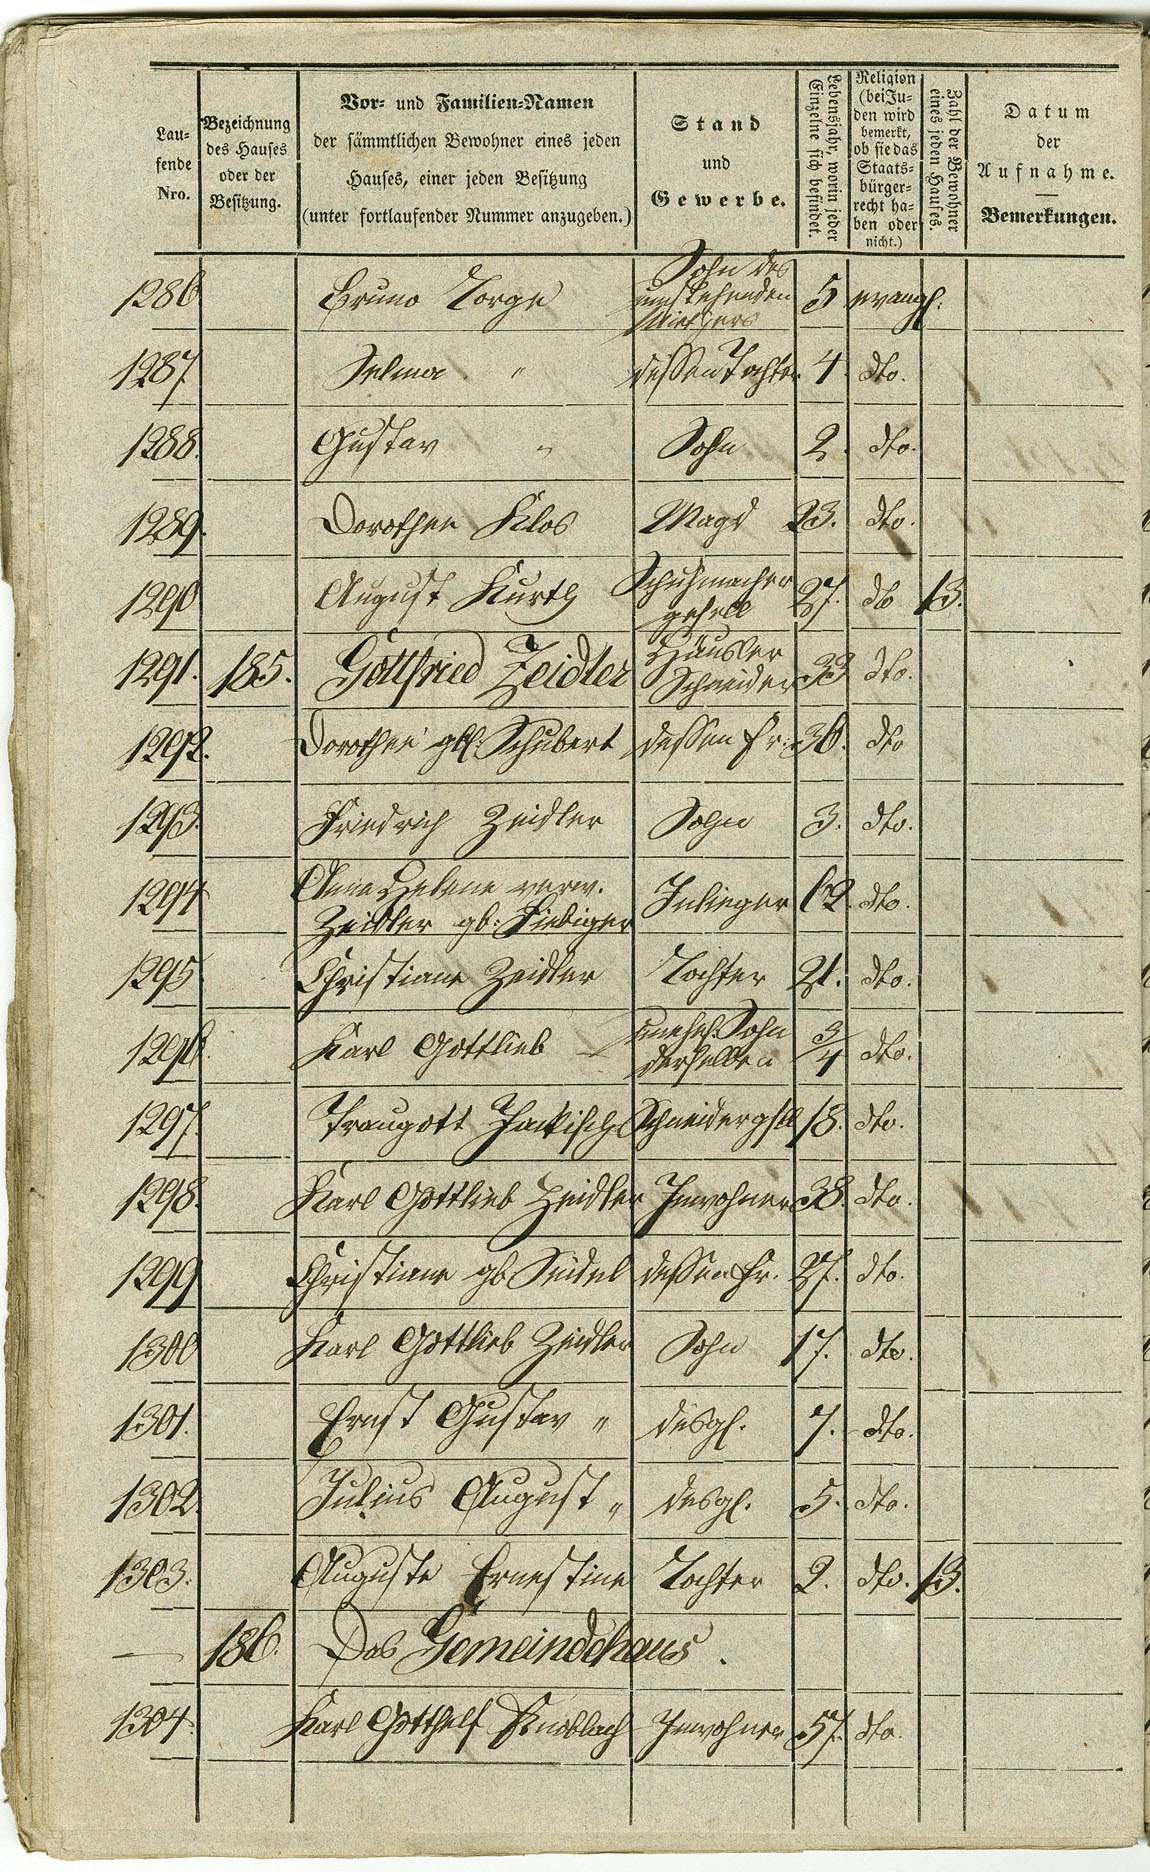 Lau-
fende
Nro.
Bezeichnung
des Hauses
oder der
Besitzung.
Vor- und Familien-Namen
der sämmtlichen Bewohner eines jeden
Hauses, einer jeden Besitzung
(unter fortlaufender Nummer anzugeben.)
Stand
und
Gewerbe.
Lebensjahr, worin jeder
Einzelne sich befindet.
Religion
(bei Ju-
den wird
bemerkt,
ob sie das
Staats-
bürger-
recht ha-
ben oder
nicht.)
Zahl der Bewohner
eines jeden Hauses.
Datum
der
Aufnahme.
Bemerkungen.
Sohn des
1286 Bruno Torge umstehenden 5 evangl.
1287 Selma " dessen Tochter 4. dto.
1288. Gustav " Sohn 2. dto.
1289. Dorothee Klos Magd 23. dto.
1290 August Kurtz Schuhmacher 27. dto 13.
gesell
1291. 185. Gottfried Zeidler Häusler 33 dto.
Schneider
1292. Dorothee geb. Schubert dessen Fr. 36. dto
1293. Friedrich Zeidler Sohn 3. dto.
1294 Anna Helene verw. Inlieger 62. dto.
Zeidler gb: Fiebiger
1295. Christiane Zeidler Tochter 21. dto.
1296. Karl Gottlieb — unehel. Sohn 3/4 dto.
derselben
1297. Traugott Jackisch Schneidergsell 18. dto.
1298. Karl Gottlieb Zeidler Inwohner 38. dto.
1299 Christiane gb. Seidel dessen Fr. 27. dto.
1300 Karl Gottlieb Zeidler Sohn 17. dto.
1301. Ernst Gustav " desgl. 7. dto.
1302. Julius August " desgl. 5. dto.
1303. Auguste Ernestine Tochter 2. dto. 13.
— 186. Das Gemeindehaus.
1304. Karl Gotthelf Knoblach Inwohner 57. dto.